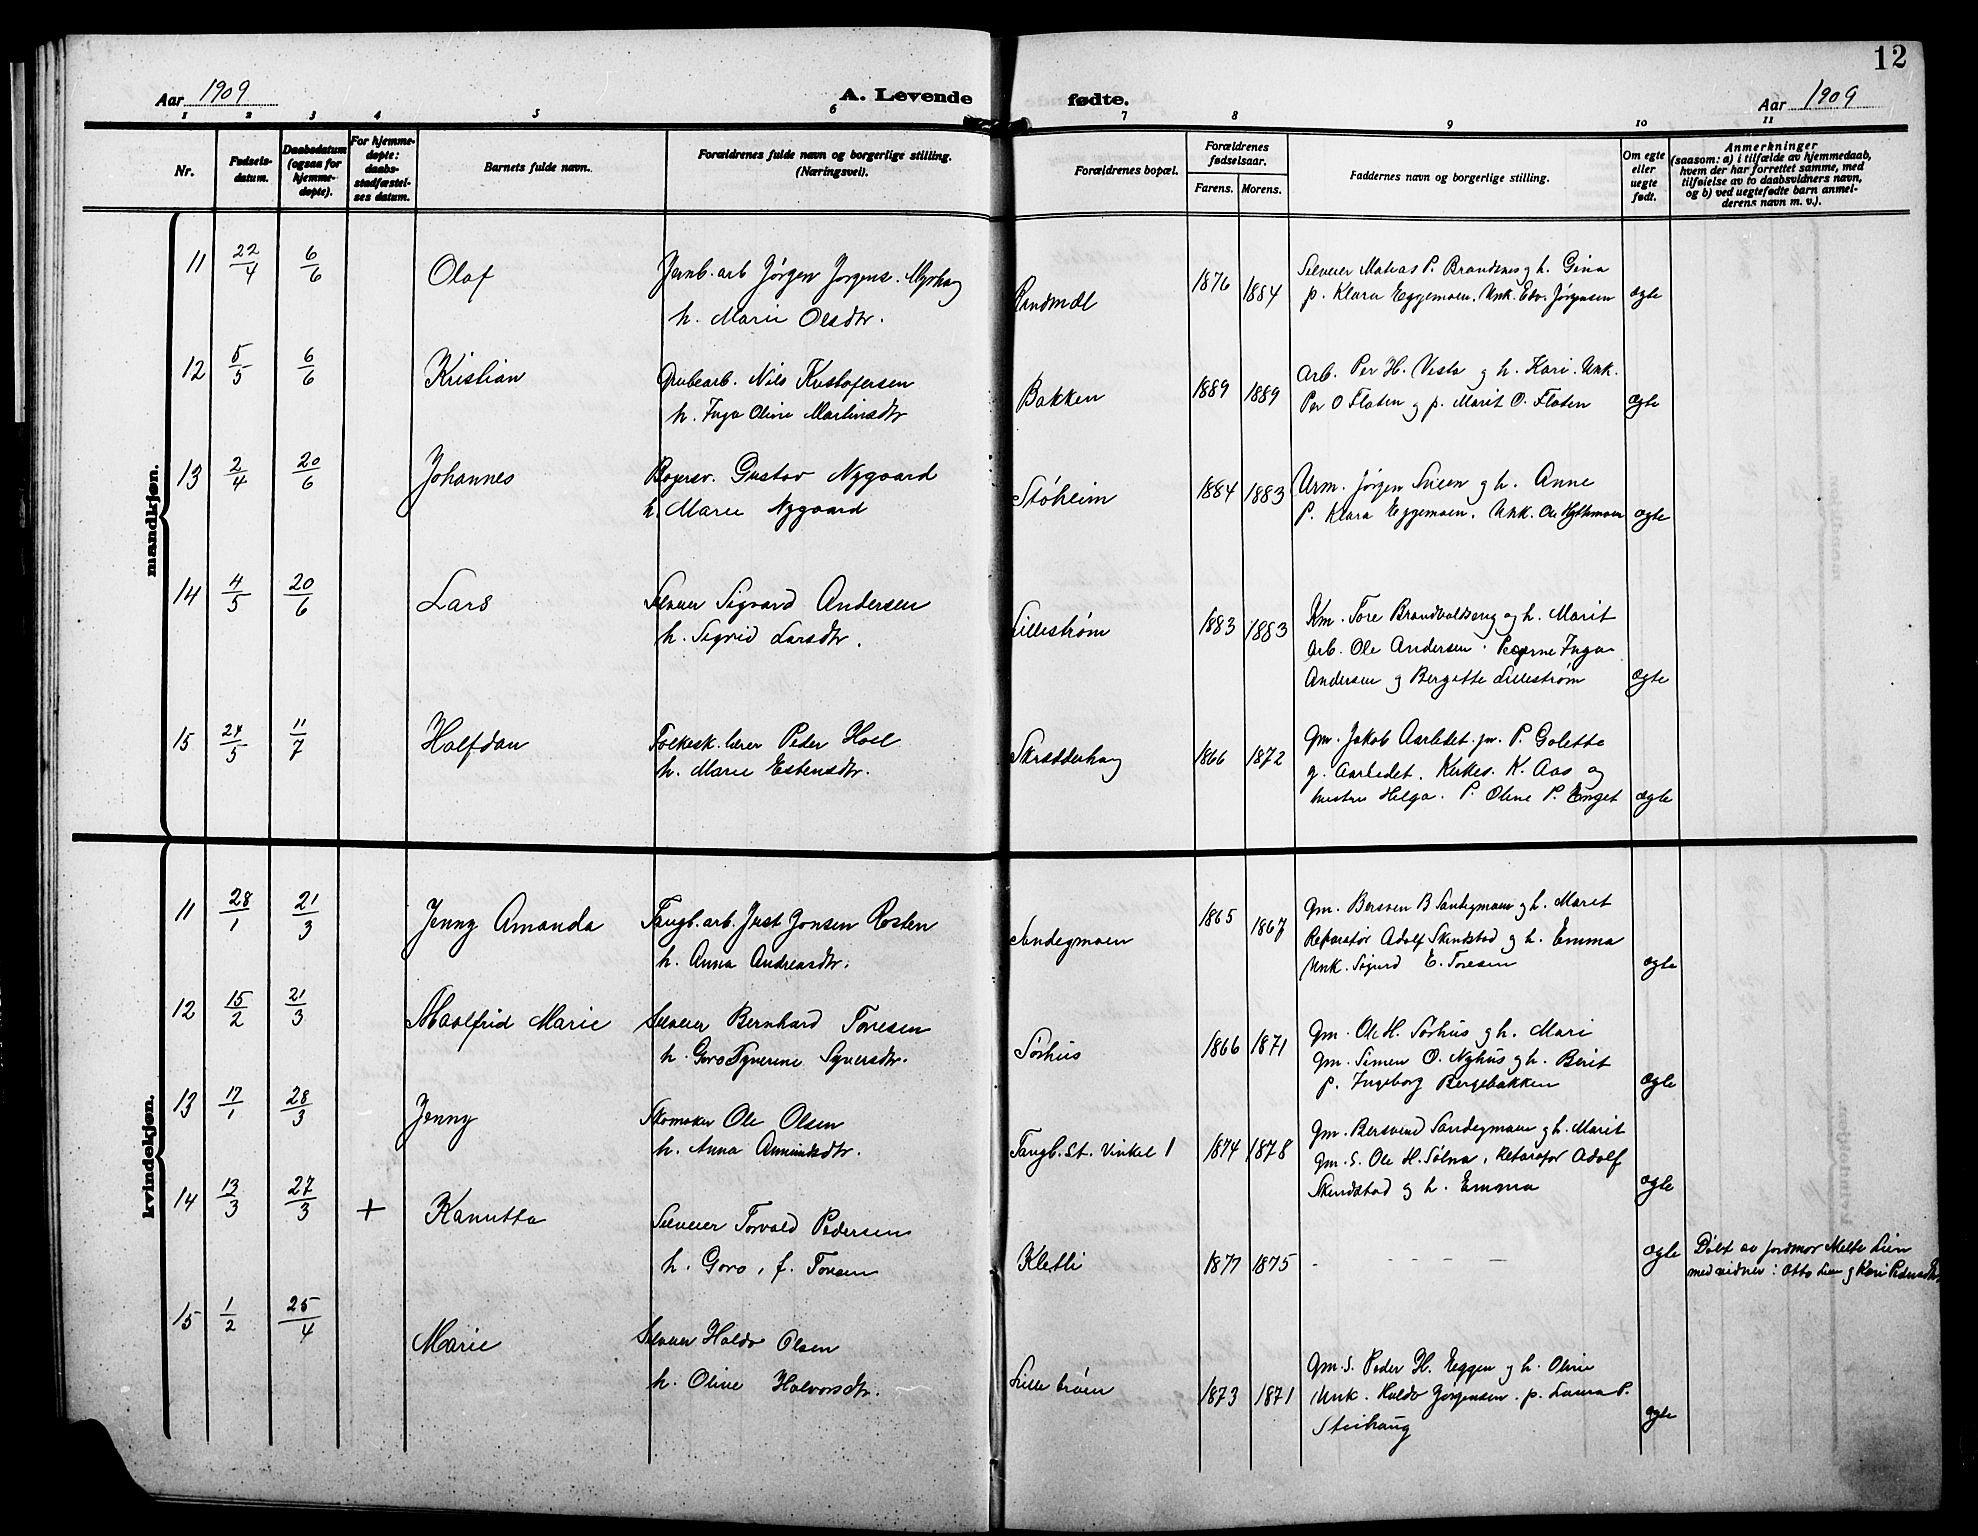 12
Aar 1909
A. Levende
fødte.
Aar 1909
1 2 3 4 5 6 7 8 9 10 11
Nr.
Fødsels-
datum.
Daabsdatum
(ogsaa for
hjemme-
døpte).
For hjemme-
døpte:
daabs-
stadfæstel-
ses datum.
Barnets fulde navn.
Forældrenes fulde navn og borgerlige stilling.
(Næringsvei).
Forældrenes bopæl.
Forældrenes
fødselsaar.
Farens. Morens.
Faddernes navn og borgerlige stilling.
Om egte
eller
uegte
født.
Anmerkninger
(saasom: a) i tilfælde av hjemmedaab,
hvem der har forrettet samme, med
tilføielse av to daabsvidners navn,
og b) ved uegtefødte barn anmel-
derens navn m. v.).
mandkjøn.
11 22/4 6/6 Olaf
Jernb. arb Jørgen Jørgens. Myrhaug
h. Marie Olsdtr.
1876 1884
Selveier Matias P. Brandsnes og h. Gina
p. Klara Eggemoen. Unk. Edv. Jørgensen
ægte
12 5/5 6/6 Kristian
Grubearb. Nils Kristofersen
h. Inga Oline Martinsdtr
Bakken
1889 1889
Arb. Per H. Vesta og h. Kari. Unk.
Per O Floten og p. Marit O. Floten
ægte
13 2/4 20/6 Johannes
Gustav Nygaard
h. Marie Nygaard
Støheim
1884 1883
Urm. Jørgen Sveen og h. Anne
P. Klara Eggemoen. Unk. Ole
ægte
14 4/5 20/6 Lars
Selveier Sigvard Andersen
h. Sigrid Larsdtr.
Lillestrøm
1883 1883
Km. Tore Brandvoldseng og h. Marit
Arb. Ole Andersen. Pigerne Inga
Andersen og Bergitte Lillestrøm
ægte
15 24/5 11/7 Halfdan
Folkesk. lærer Peder Hoel
h. Marie Estensdtr.
Skrædderhaug
1866 1872
Gm. Jakob Aarledet. P. Golette
Aarledet. Kirkes. K. Aas og
hustru Helga. P. Oline P. Enget
ægte
kvindekjøn.
11 28/1 21/3 Jenny Amanda
Fangb. arb. Just Jonsen Rosten
h. Anna Andreasdtr.
Sandegmoen
1865 1867
Gm. Bersven B Sandegmoen og h. Marit
Reparatør Adolf Skindstad og h. Emma
Unk. Sigurd E. Toresen
ægte
12 15/2 21/3 Maalfrid Marie
Selveier Bernhard Toresen
h. Goro Syverine Syversdtr.
Sørhus
1866 1871
Gm. Ole H. Sørhus og h. Mari
Gm. Simen O. Nyhus og h. Berit
p. Ingeborg Bergebakken
ægte
13 17/1 28/3 Jenny
Skomaker Ole Olsen
h. Anna Amundsdtr.
Fangb. St. Vinkel 1
1874 1878
Gm. Bersvend Sandegmoen og h. Marit
Gm. S. Ole H. Sølna, Reparatør Adolf
Skindstad og h. Emma
ægte
14 13/3 27/3 + Kanutta
Selveier Torvald Pedersen
h. Goro, f. Toresen
Kletli
1877 1875
- - - - -
ægte
Døbt av jordmor Melte Lien
med vidner: Otto Lien og Kari
15 1/2 25/4 Marie
Selveier Haldo Olsen
h. Oline Halvorsdtr.
1873 1871
Gm. S. Peder H. Eggen og h. Oline
Unk. Haldo Jørgensen. p. Laura P.
Steihaug
ægte